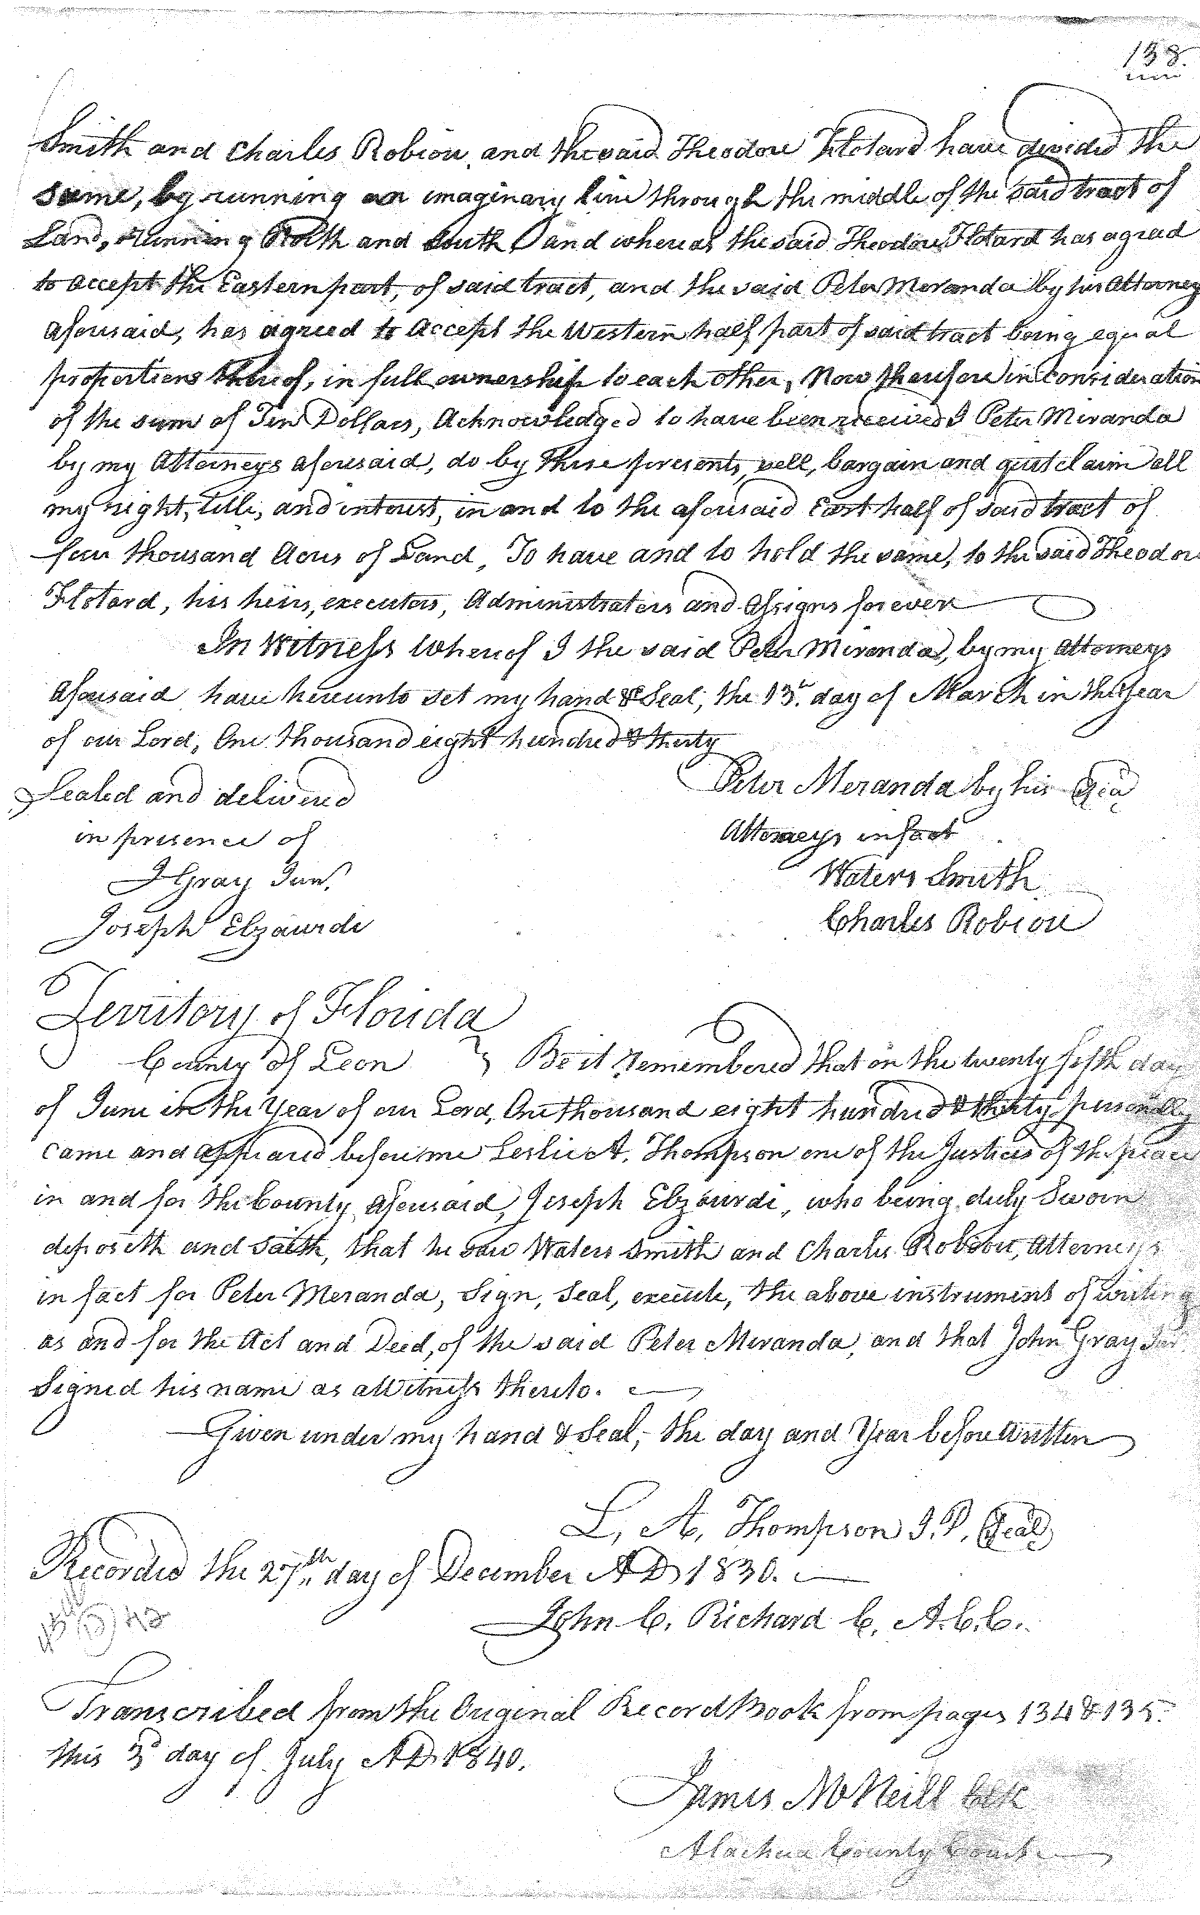 138.
Smith and Charles Robiou, and the said Theodore Flotard have divided the
same, by running an imaginary line through the middle of the said tract of
Land, running North and South, and whereas the said Theodore Flotard has agreed
to accept the Eastern part, of said tract, and the said Peter Meranda by his Attorney
aforesaid, has agreed to accept the Western half part of said tract being equal
proportions thereof, in full ownership to each other, Now therefore in Consideration
of the sum of Ten Dollars, Acknowledged to have been received I Peter Miranda
by my Attorneys aforesaid, do by these presents, sell, bargain and quit claim all
my right, title, and interest, in and to the aforesaid East half of said tract of
four thousand Acres of Land, To have and to hold the same, to the said Theodore
Flotard, his heirs, executors, Administrators and Assigns forever
In Witness whereof I the said Peter Miranda, by my Attorneys
aforesaid have hereunto set my hand & Seal, the 13th day of March in the Year
of our Lord, One thousand eight hundred & thirty
Sealed and delivered
in presence of
J Gray Junr.
Joseph Elzaurdi
Peter Meranda by his Seal
Attorneys in fact
Waters Smith
Charles Robiou
Territory of Florida
County of Leon } Be it remembered that on the twenty fifth day
of June in the Year of our Lord, One thousand eight hundred & thirty personally
came and appeared before me Leslie A. Thompson one of the Justices of the peace
in and for the County aforesaid, Joseph Elzaurdi, who being duly Sworn
deposeth and saith, that he saw Waters Smith and Charles Robiou, Attorneys
in fact for Peter Meranda, Sign, Seal, execute, the above instrument of writing
as and for the Act and Deed, of the said Peter Meranda, and that John Gray Jur
Signed his name as a Witness thereto.
Given under my hand & Seal, the day and Year before written
L. A. Thompson J. P. Seal
Recorded the 27th day of December AD 1830.
John C. Richard C. A. C. C.
Transcribed from the Original Record Book from pages 134 & 135.
this 3d day of July AD 1840.
James McNeill Clk
Alachua County Court